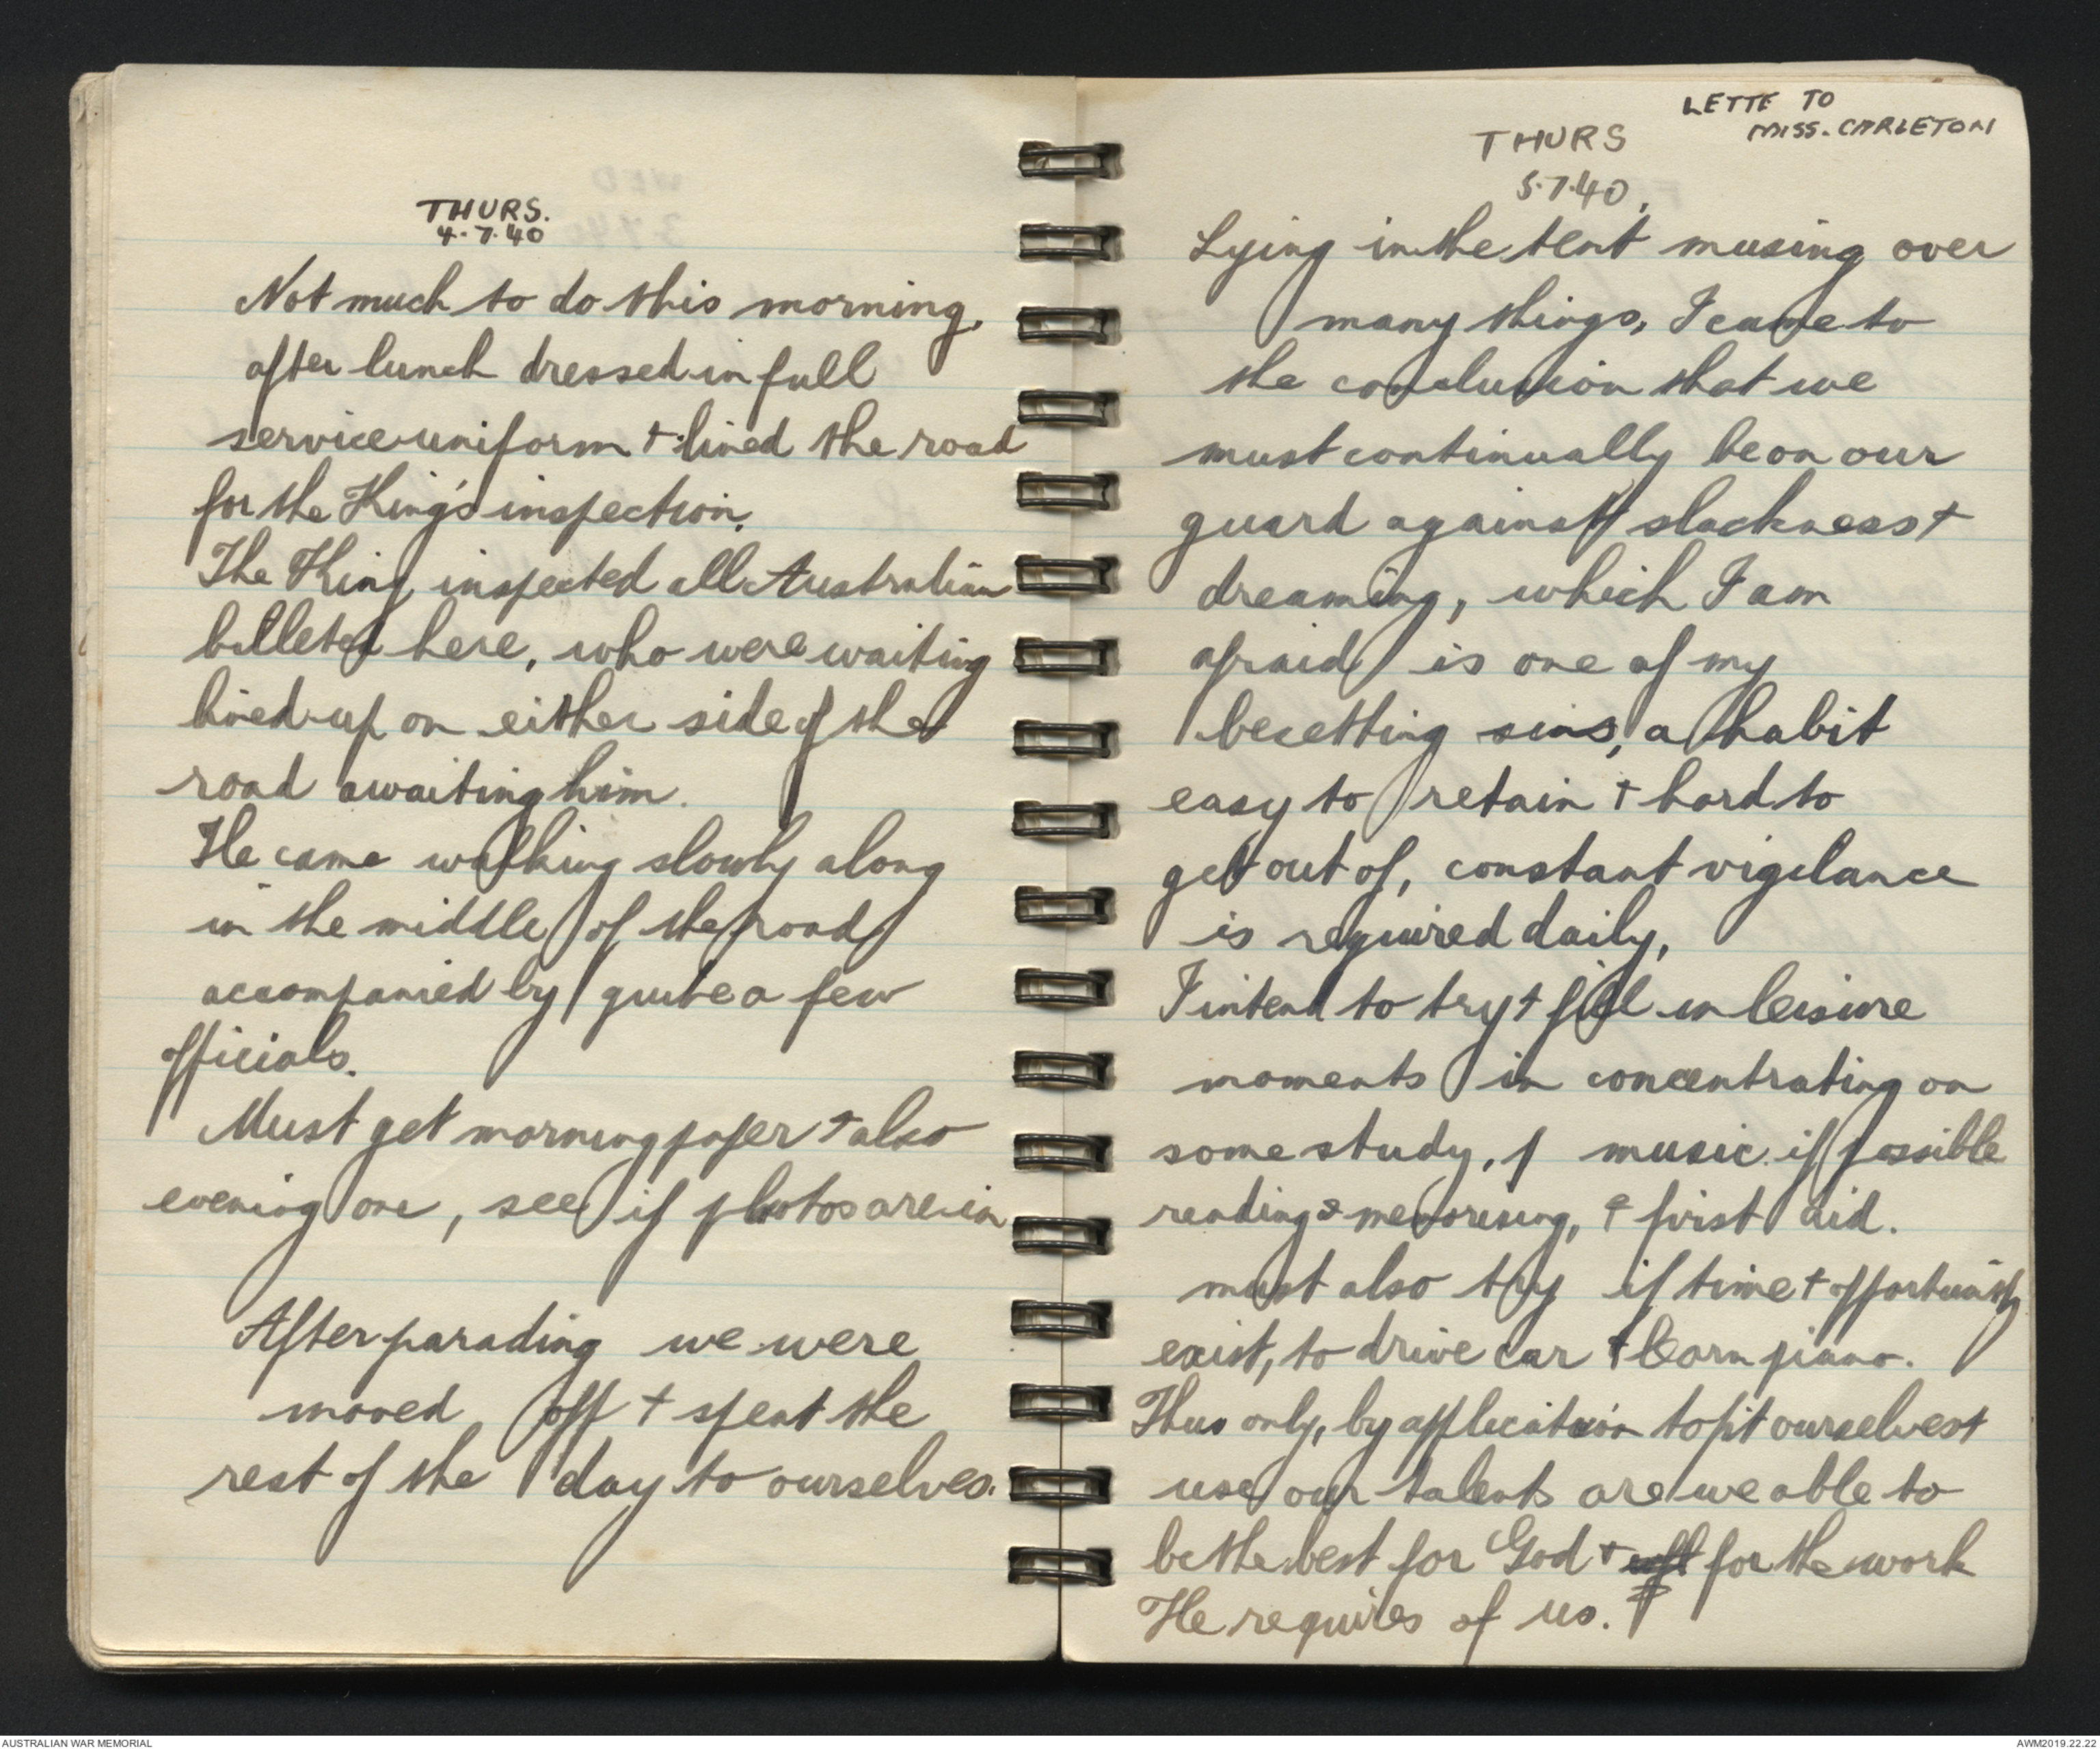 THURS.
4.7.40
Not much to do this morning,
after lunch dressed in full
service uniform + lined the road
for the King's inspection.
The King inspected all Australian
billeted here, who were waiting
lined up on either side of the
road awaiting him.
He came walking slowly along
in the middle of the road
accompanied by quite a few
officials.
Must get morning paper + also
evening one, see if photos are in
After parading we were
moved off + spent the
rest of the day to ourselves.
LETTE TO
MISS. CARLETON
THURS
5.7.40.
Lying in the tent musing over
many things, I came to
the conclusion that we
must continually be on our
guard against slackness +
dreaming, which I am
afraid is one of my
besetting sins, a habit
easy to retain + hard to
get out of, constant vigilance
is required daily,
I intend to try + fill in leisure
moments in concentrating on
some study, music if possible
reading & memorising, & first aid.
must also try if time + opportunity
exist, to drive car + learn piano.
Thus only, by application to fit ourselves +
use our talents are we able to
be the best for God + for the work
He requires of us.
AUSTRALIAN WAR MEMORIAL
AWM2019.22.22